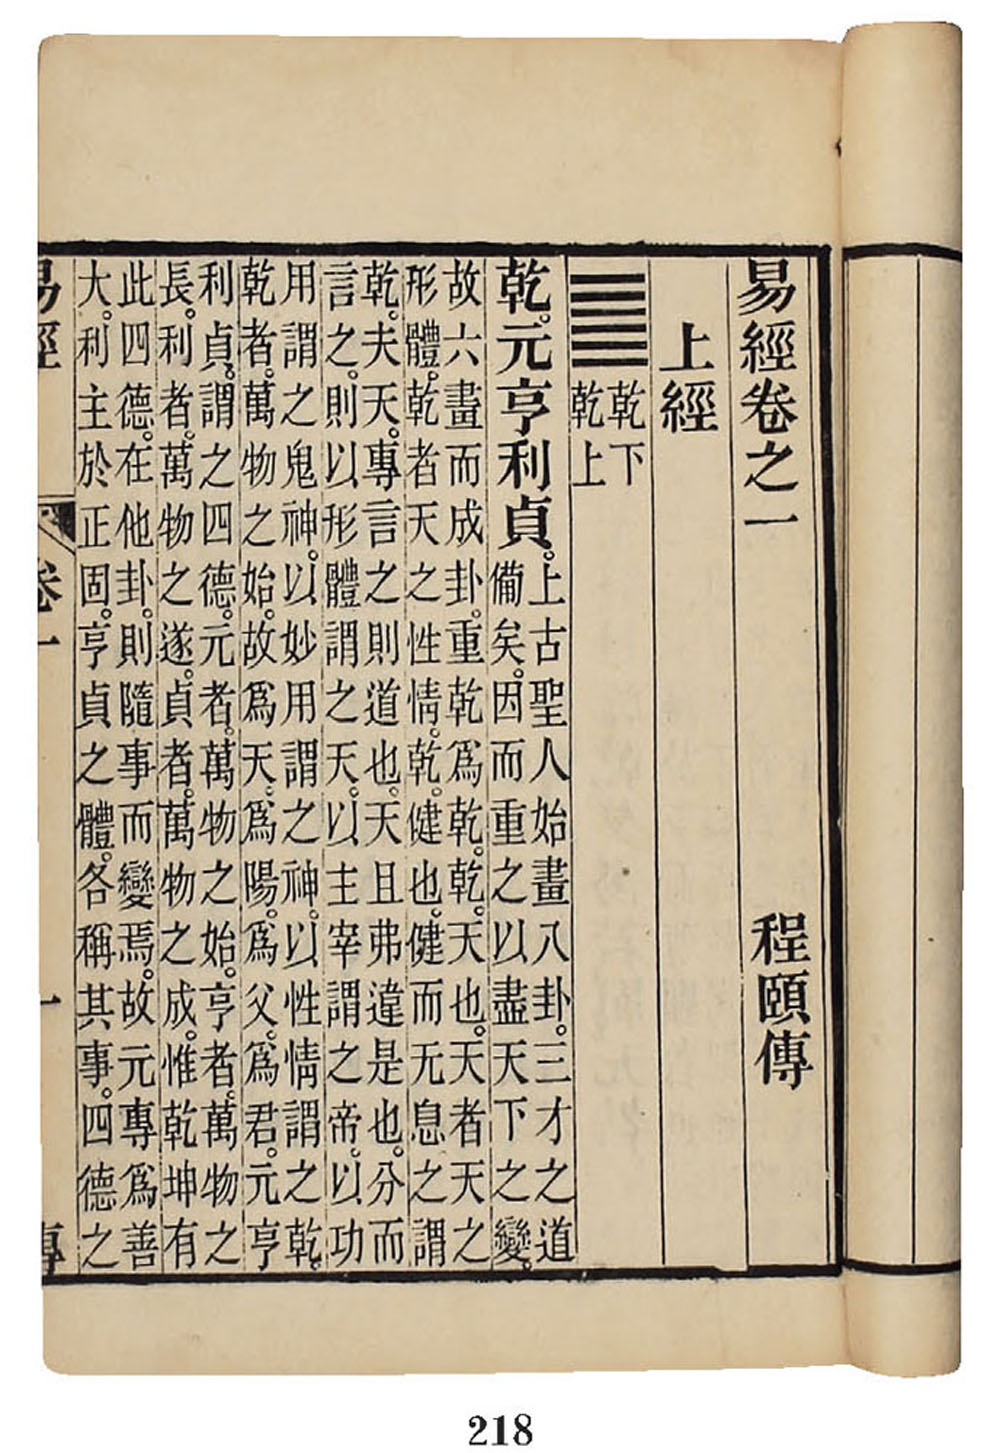 易經卷之一
程頤傳
上經
乾下
乾上
乾。元亨利貞。
上古聖人始畫八卦。三才之道
備矣。因而重之以盡天下之變。
故六畫而成卦。重乾爲乾。乾。天也。天者天之
形體。乾者天之性情。乾。健也。健而无息之謂
乾。夫天。專言之則道也。天且弗違是也。分而
言之。則以形體謂之天。以主宰謂之帝。以功
用謂之鬼神。以妙用謂之神。以性情謂之乾。
乾者。萬物之始。故爲天。爲陽。爲父。爲君。元亨
利貞。謂之四德。元者。萬物之始。亨者。萬物之
長。利者。萬物之遂。貞者。萬物之成。惟乾坤有
此四德。在他卦。則隨事而變焉。故元專爲善
大。利主於正固。亨貞之體。各稱其事。四德之
易經
卷一
一
傳
218